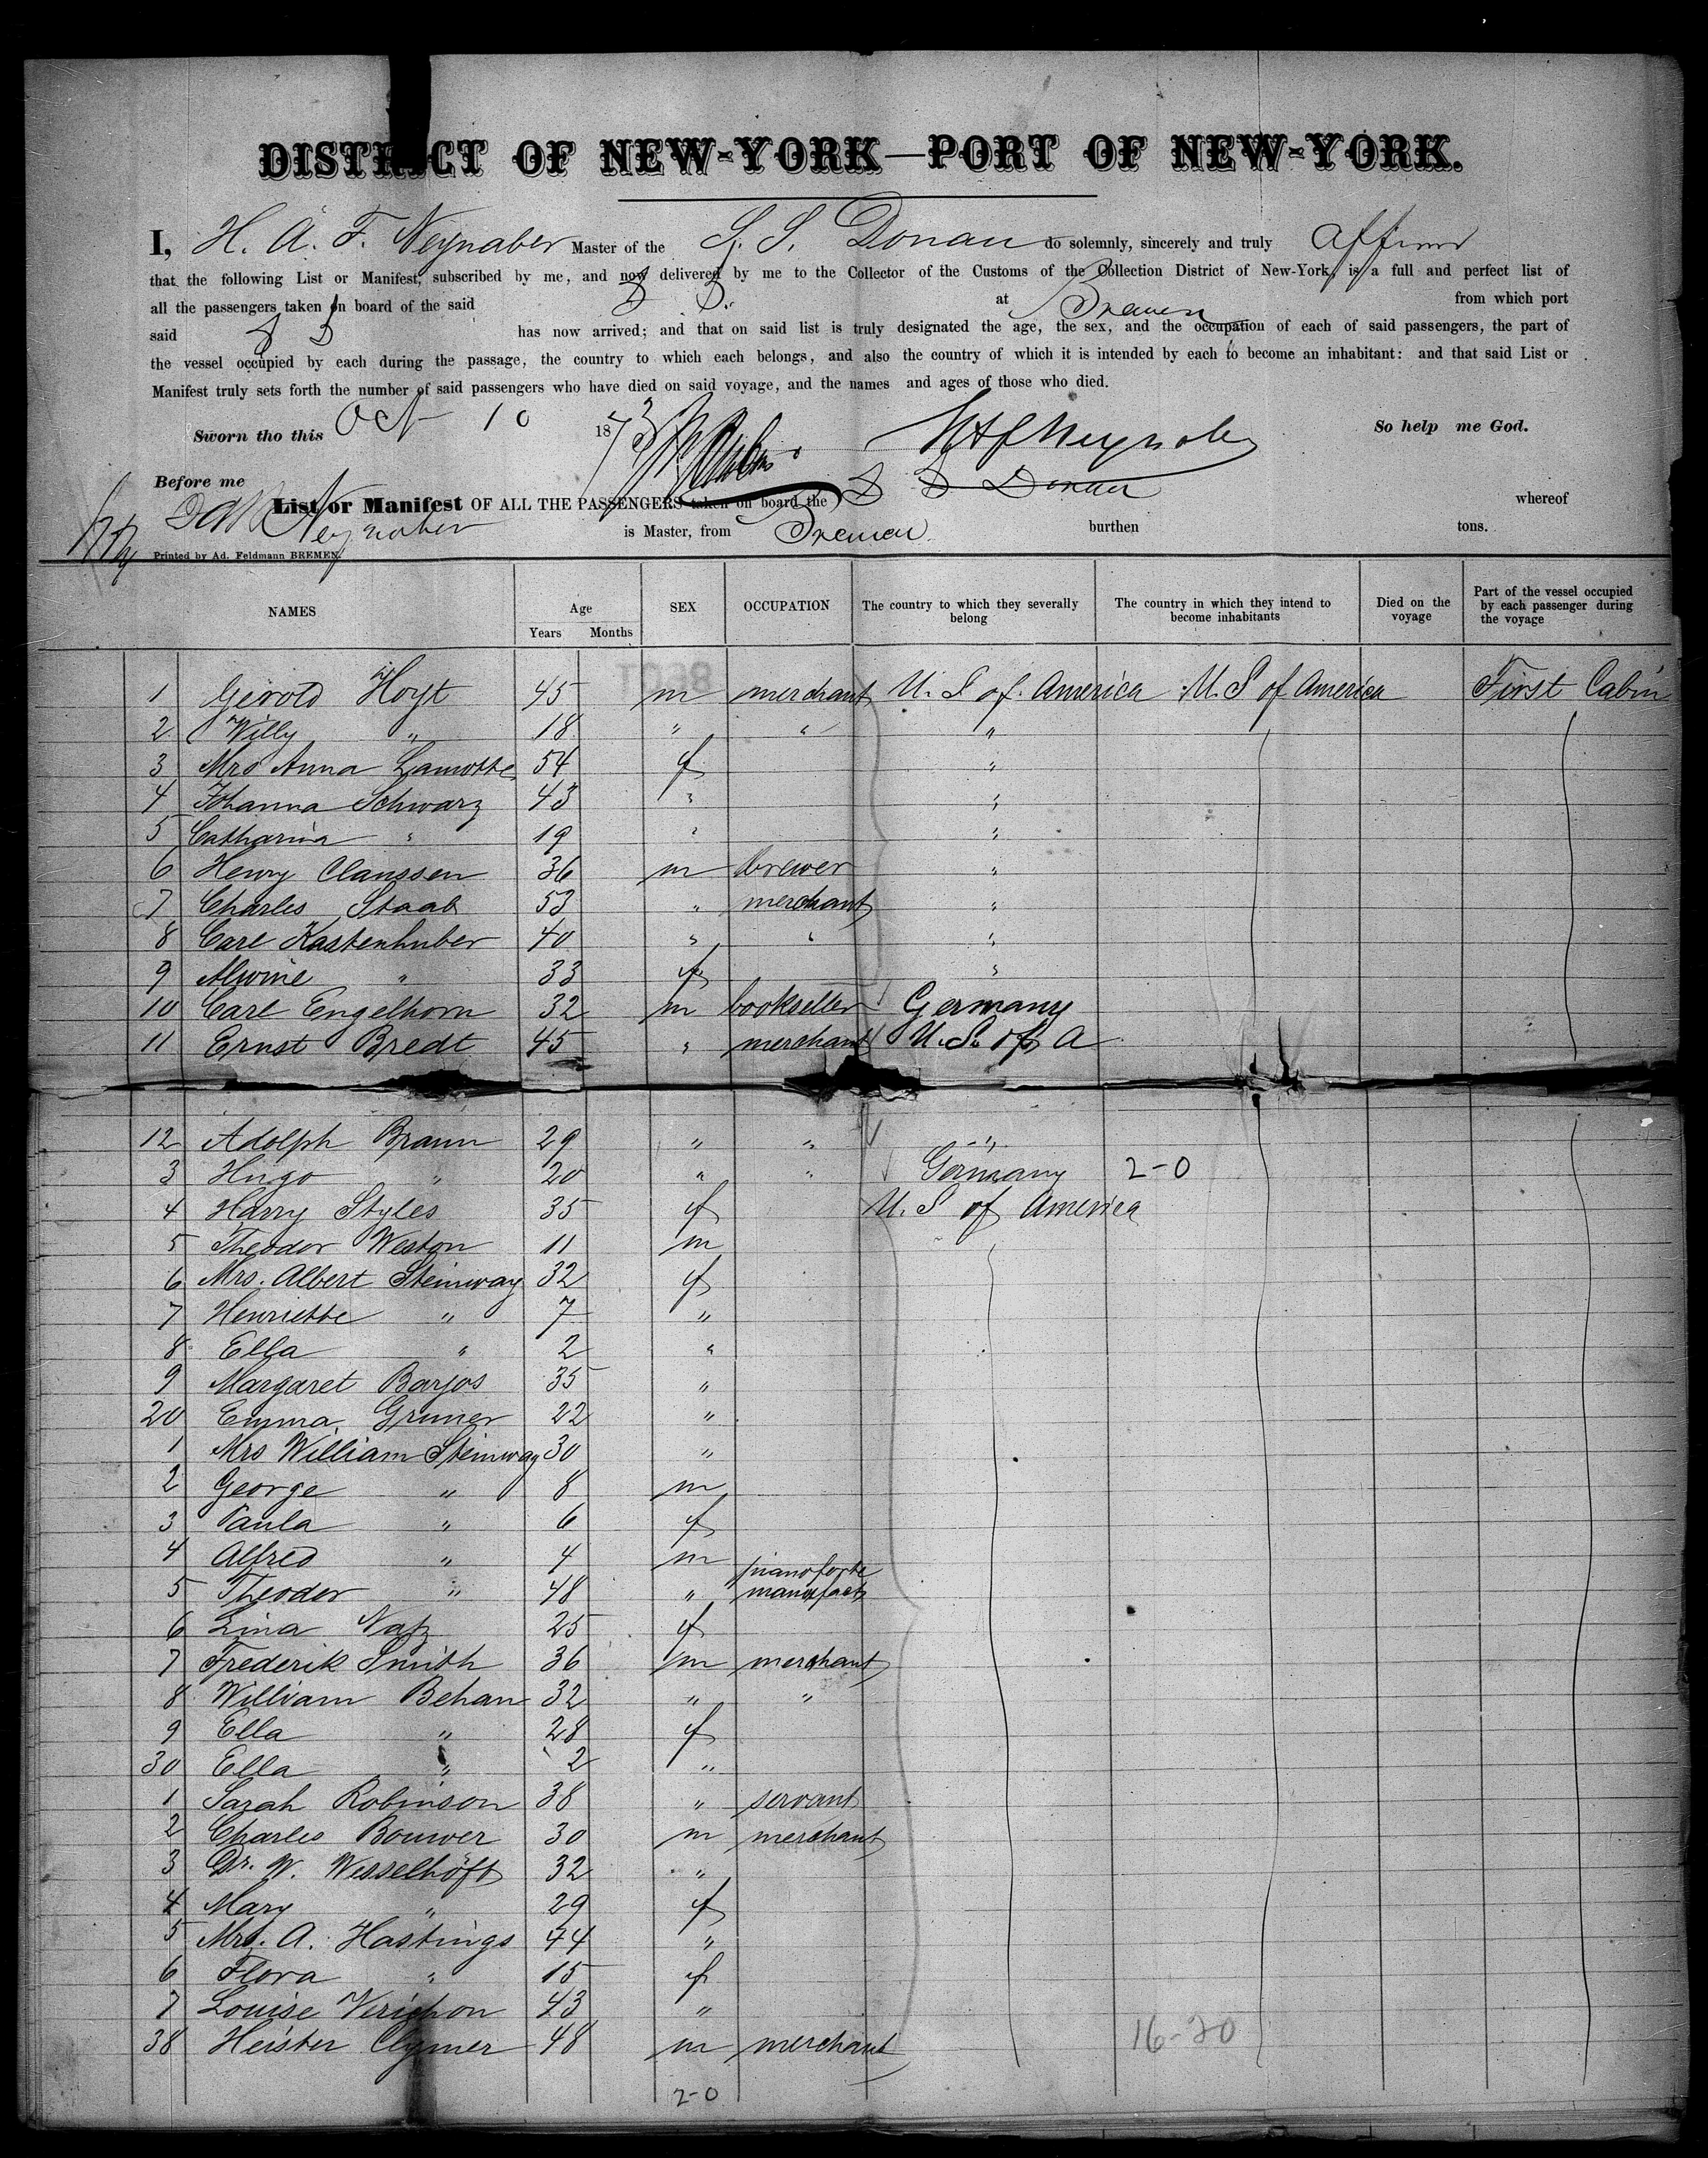 DISTRICT OF NEW-YORK—PORT OF NEW-YORK.
I, H. A. F. Neynaber Master of the S. S. Donau do solemnly, sincerely and truly affirm
that the following List or Manifest, subscribed by me, and now delivered by me to the Collector of the Customs of the Collection District of New-York, is a full and perfect list of
all the passengers taken on board of the said S S. at Bremen from which port
said S S has now arrived; and that on said list is truly designated the age, the sex, and the occupation of each of said passengers, the part of
the vessel occupied by each during the passage, the country to which each belongs, and also the country of which it is intended by each to become an inhabitant: and that said List or
Manifest truly sets forth the number of said passengers who have died on said voyage, and the names and ages of those who died.
Sworn tho this Oct 10 1873 HAFNeynaber So help me God.
Before me
List or Manifest OF ALL THE PASSENGERS taken on board the S S Donau whereof
Neynaber is Master, from Bremen burthen tons.
Printed by Ad. Feldmann BREMEN.
NAMES Age Years Months SEX OCCUPATION The country to which they severally belong The country in which they intend to become inhabitants Died on the voyage Part of the vessel occupied by each passenger during the voyage
1 Gerold Hoyt 45 m merchant U. S of America U. S of America First Cabin
2 Willy " 18 " " "
3 Mrs Anna Lamotte 54 f "
4 Johanna Schwarz 43 " "
5 Catharina " 19 " "
6 Henry Claussen 36 m brewer "
7 Charles Staab 53 " merchant "
8 Carl Kastenhuber 40 " " "
9 Alwine " 33 f "
10 Carl Engelhorn 32 m bookseller Germany
11 Ernst Bredt 45 " merchant U. S. of A
12 Adolph Braun 29 " " "
3 Hugo " 20 " " Germany 2-0
4 Harry Styles 35 f U. S of America
5 Theodor Weston 11 m
6 Mrs. Albert Steinway 32 f
7 Henriette " 7 "
8 Ella " 2 "
9 Margaret Barjos 35 "
20 Emma Gruner 22 "
1 Mrs William Steinway 30 "
2 George " 8 m
3 Paula " 6 f
4 Alfred " 4 m
5 Theodor " 48 " pianoforte manufact
6 Lina Natz 25 f
7 Frederik Smith 36 m merchant
8 William Behan 32 " "
9 Ella " 28 f
30 Ella " 2 "
1 Sarah Robinson 38 " servant
2 Charles Bouwer 30 m merchant
3 Dr. W. Wesselhöft 32 "
4 Mary " 29 f
5 Mrs. A. Hastings 44 "
6 Flora " 15 f
7 Louise Verichon 43 "
38 Heister Clymer 48 m merchant
16-20
2-0